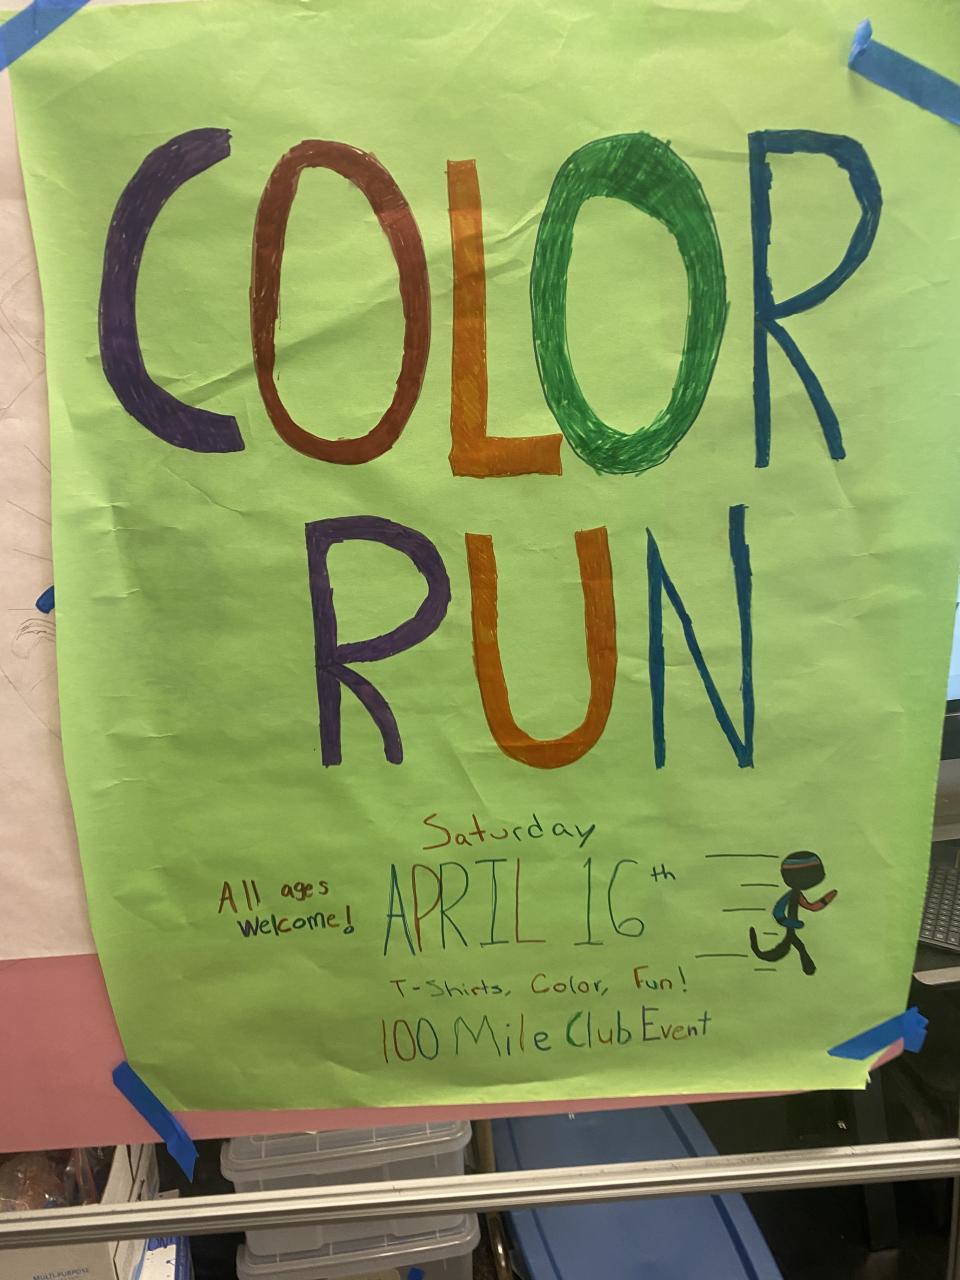 COLOR
RUN
Saturday
All ages
Welcome!
APRIL 16th
T-Shirts, Color, Fun!
100 Mile Club Event
MULTI-PURPOSE